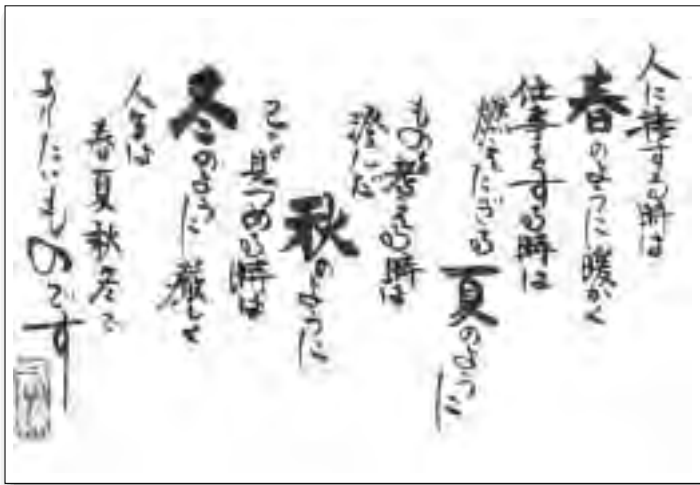 人に接する時は
春のように暖かく
仕事をする時は
燃えたぎる
夏のように
ものを考える時は
澄んだ
秋のように
己を見つめる時は
冬のように厳しく
人生は
春夏秋冬で
ありたいものです